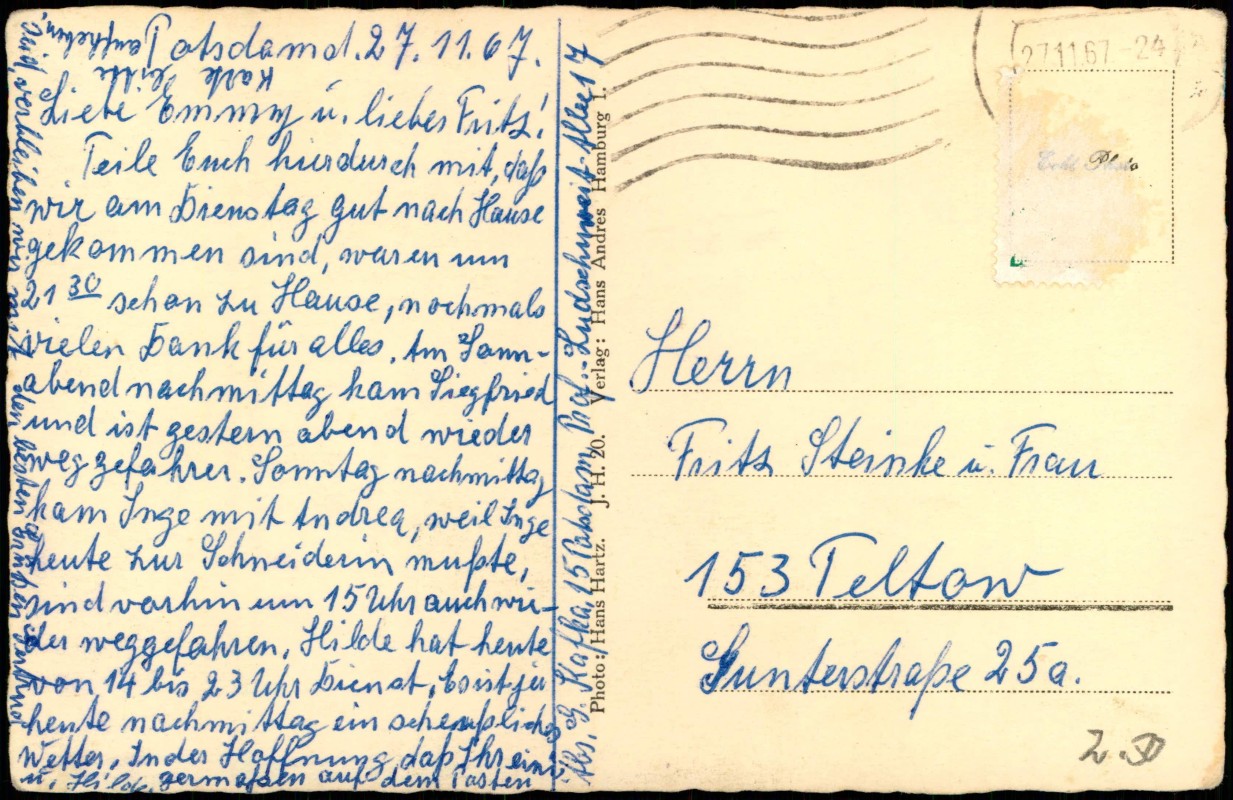 Potsdam d. 27. 11. 67.
Liebe Emmy u. lieber Fritz!
Teile Euch hierdurch mit, daß
wir am Dienstag gut nach Hause
gekommen sind, waren um
21 30 schon zu Hause, nochmals
vielen Dank für alles. Am Sonn-
abend nachmittag kam Siegfried
und ist gestern abend wieder
weggefahren. Sonntag nachmittag
kam Inge mit Andrea, weil Inge
heute zur Schneiderin mußte,
sind vorhin um 15 Uhr auch wie-
der weggefahren. Hilde hat heute
von 14 bis 23 Uhr Dienst. Es ist ja
heute nachmittag ein scheußliches
Wetter. In der Hoffnung, daß Ihr eini-
germaßen auf dem Posten
sind, verbleiben wir mit den besten Grüßen
u. Hilde
Karte bitte
aufheben.
Abs. G. Kafka, 15 Potsdam, Prof.-Ludschuweit-Allee 17
Photo: Hans Hartz. J. H. 20. Verlag: Hans Andres Hamburg 1.
27.11.67.-24
Echt Photo
Herrn
Fritz Steinke u. Frau
153 Teltow
Gunterstraße 25a.